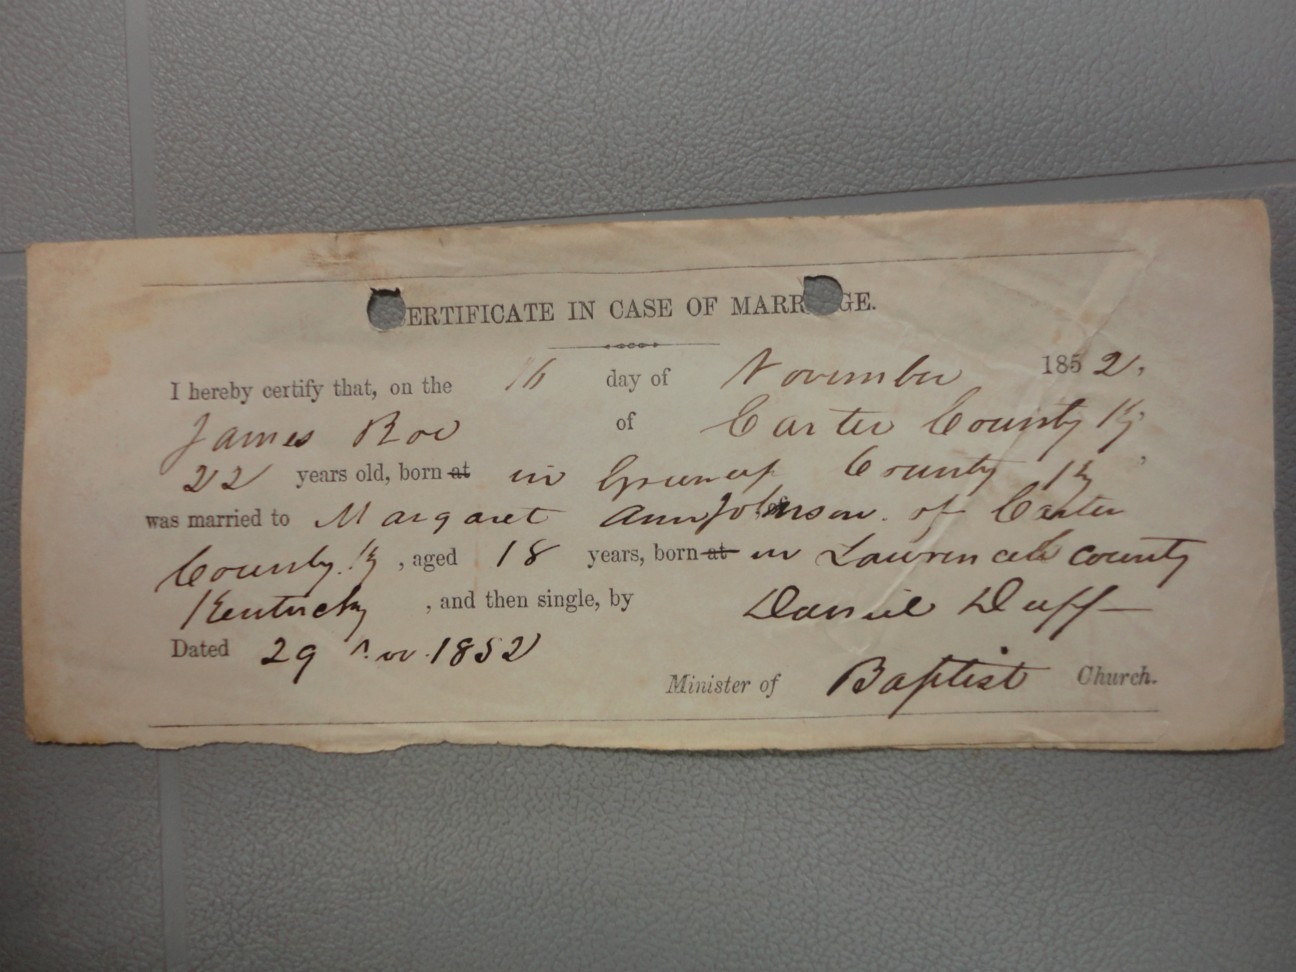 ERTIFICATE IN CASE OF MARR GE.
I hereby certify that, on the 16 day of November 1852,
James Roe of Carter County Ky
22 years old, born at in Greenup County Ky
was married to Margaret Ann Johnson. of Carter
County. Ky, aged 18 years, born at in Lawrence county
Kentucky, and then single, by Daniel Duff
Dated 29 Nov. 1852
Minister of Baptist Church.